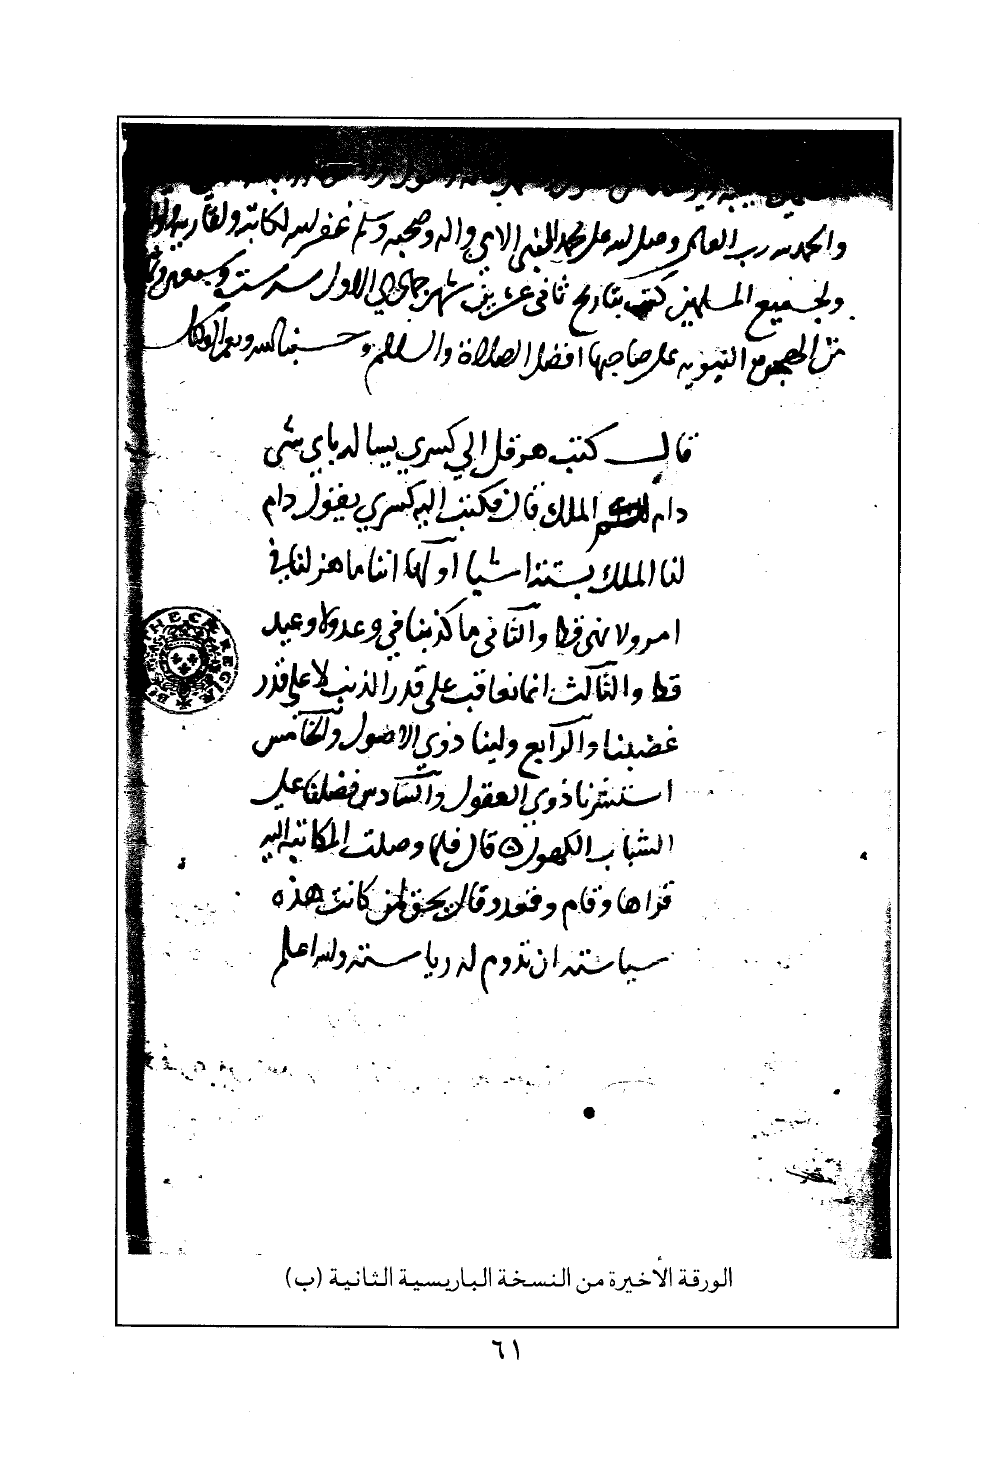 والحمد لله رب العالمين وصلى الله على محمد النبي الامي واله وصحبه وسلم غفر الله لكاتبه ولقاريه
ولجميع المسلمين كتب بتاريخ ثاني عشرين شهر جمادي الاول سنه ست وسبعين
من الهجره النبويه على صاحبها افضل الصلاة والسلام وحسبنا الله ونعم الوكيل
قال كتب هرقل الي كسري يساله باي شي
دام الملك قال فكتب اليه كسري يقول دام
لنا الملك بستة اشيا اولها اننا ما هزلنا في
امر ولا نهي قط والثاني ما كذبنا في وعد ولا وعيد
قط والثالث انما نعاقب على قدر الذنب لا على قدر
غضبنا والرابع ولينا ذوي الاصول والخامس
استشرنا ذوي العقول والسادس فضلنا على
الشباب الكهول قال فلما وصلت المكاتبة اليه
قراها وقام وقعد وقال يحق لمن كانت هذه
سياسته ان تدوم له رياسته والله اعلم
الورقة الأخيرة من النسخة الباريسية الثانية (ب)
٦١